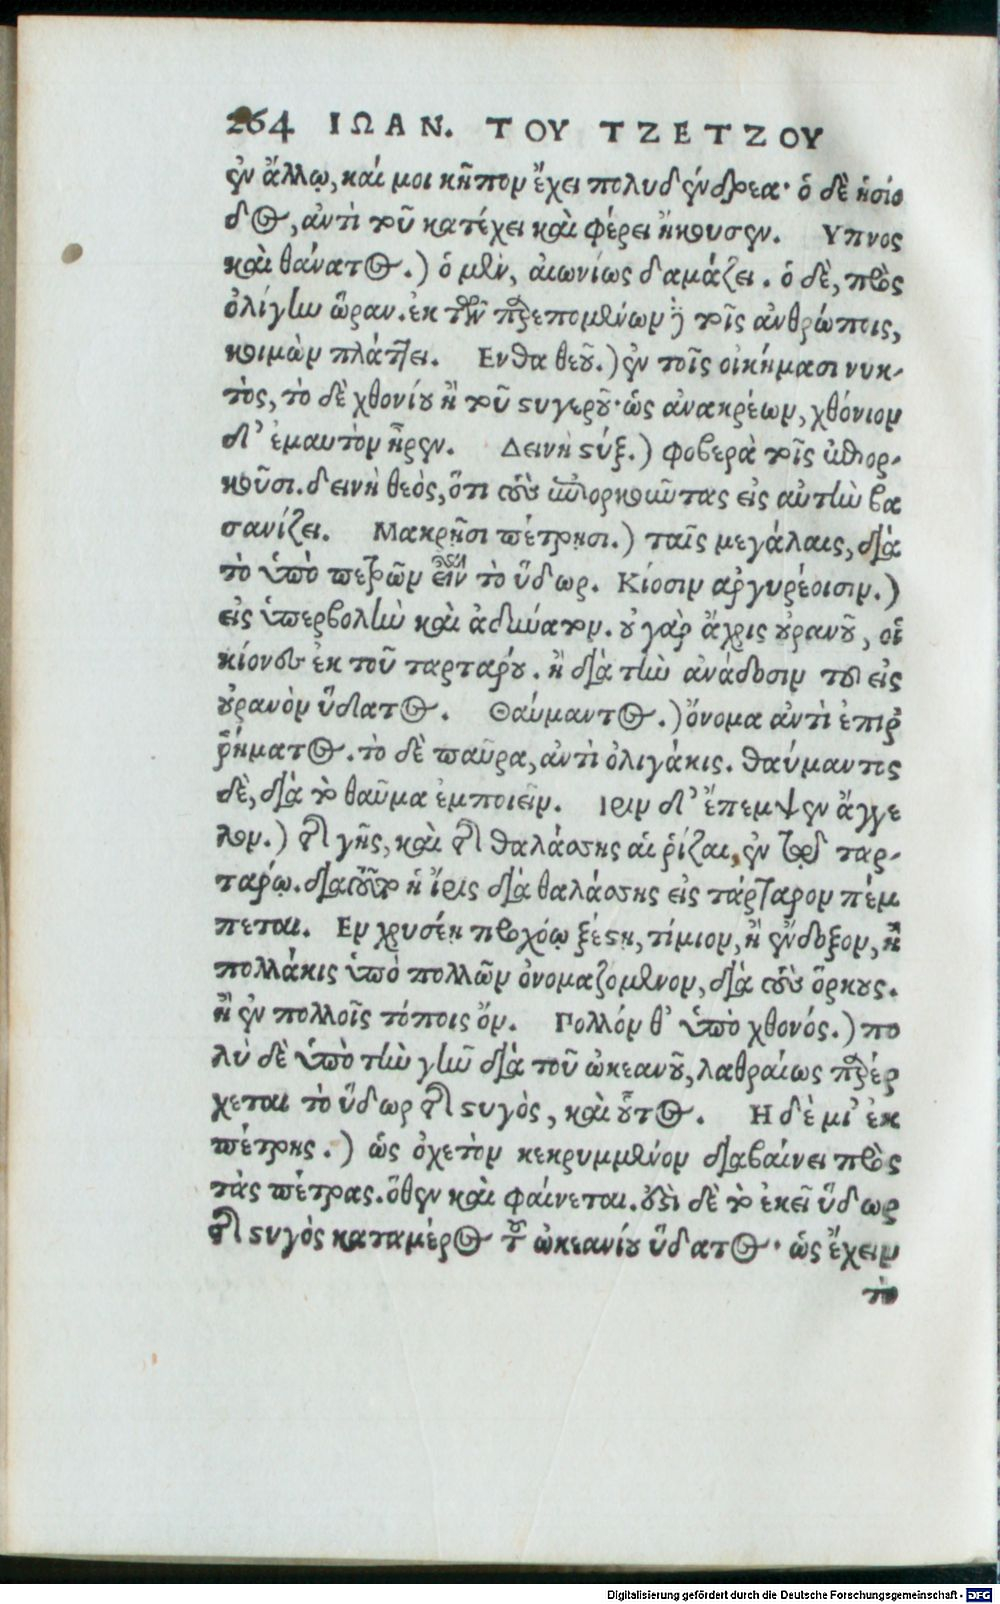 264 ΙΩΑΝ. ΤΟΥ ΤΖΕΤΖΟΥ
ἐν ἄλλῳ, καί μοι κῆπον ἔχει πολυδένδρεα· ὁ δὲ ἡσίο
δος, ἀντὶ τοῦ κατέχει καὶ φέρει ἤκουσεν. Υπνος
καὶ θάνατος.) ὁ μὲν, αἰωνίως δαμάζει. ὁ δὲ, πρὸς
ὀλίγην ὥραν. ἐκ τῶν παρεπομένων τοῖς ἀνθρώποις,
κοιμῶν πλάττει. Ενθα θεοῦ.) ἐν τοῖς οἰκήμασι νυκ-
τὸς, τὸ δὲ χθονίου ἢ τοῦ στυγεροῦ· ὡς ἀνακρέων, χθόνιον
δ' ἐμαυτὸν ἦρεν. Δεινὴ στύξ.) φοβερὰ τοῖς ἐπιορ-
κοῦσι. δεινὴ θεὸς, ὅτι τοὺς ἐπιορκοῦντας εἰς αὐτὴν βα
σανίζει. Μακρῇσι πέτρῃσι.) ταῖς μεγάλαις, διὰ
τὸ ὑπὸ πετρῶν εἶναι τὸ ὕδωρ. Κίοσιν ἀργυρέοισιν.)
εἰς ὑπερβολὴν καὶ ἀδύνατον. οὐ γὰρ ἄχρις οὐρανοῦ, οἱ
κίονες ἐκ τοῦ ταρτάρου. ἢ διὰ τὴν ἀνάδοσιν τοῦ εἰς
οὐρανὸν ὕδατος. Θαύμαντος.) ὄνομα ἀντὶ ἐπιρ
ῥήματος. τὸ δὲ παῦρα, ἀντὶ ὀλιγάκις. θαύμαντος
δὲ, διὰ τὸ θαῦμα ἐμποιεῖν. Ιριν δ' ἔπεμψεν ἄγγε
λον.) τῆς γῆς, καὶ τῆς θαλάσσης αἱ ῥίζαι, ἐν τῷ ταρ-
τάρῳ. διὰ τοῦτο ἡ ἴρις διὰ θαλάσσης εἰς τάρταρον πέμ
πεται. Εν χρυσέῃ προχόῳ ξέστη, τίμιον, ἢ ἔνδοξον, ἢ
πολλάκις ὑπὸ πολλῶν ὀνομαζόμενον, διὰ τοὺς ὅρκους.
ἢ ἐν πολλοῖς τόποις ὄν. Πολλόν θ' ὑπὸ χθονός.) πο
λὺ δὲ ὑπὸ τὴν γῆν διὰ τοῦ ὠκεανοῦ, λαθραίως παρέρ
χεται τὸ ὕδωρ τῆς στυγὸς, καὶ οὕτος. Η δὲ μί' ἐκ
πέτρης.) ὡς ὀχετὸν κεκρυμμένον διαβαίνει πρὸς
τὰς πέτρας. ὅθεν καὶ φαίνεται. οὐσι δὲ τὸ ἐκεῖ ὕδωρ
τῆς στυγὸς καταμέρος τοῦ ὠκεανίου ὕδατος· ὡς ἔχειν
τὸ
Digitalisierung gefördert durch die Deutsche Forschungsgemeinschaft - DFG